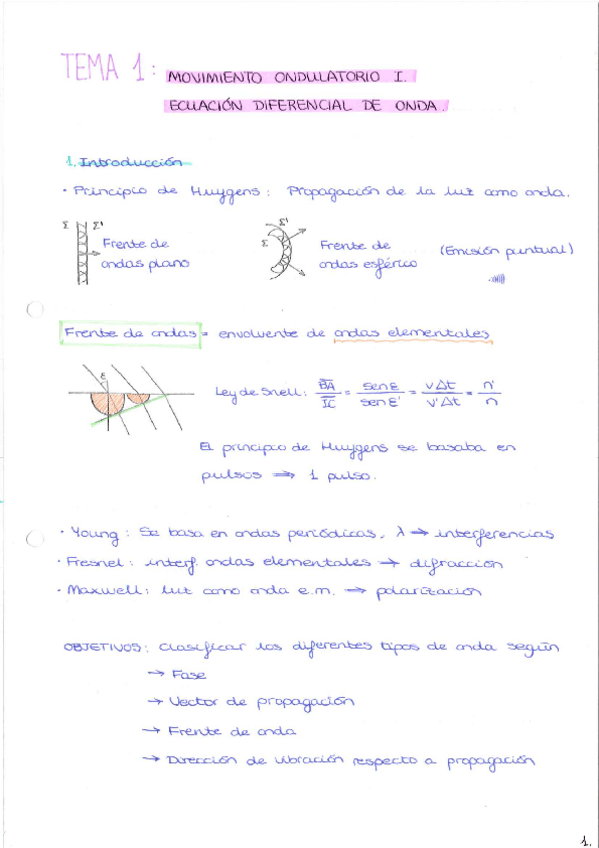 TEMA 1: MOVIMIENTO ONDULATORIO I.
ECUACIÓN DIFERENCIAL DE ONDA.
1. Introducción
· Principio de Huygens: Propagación de la luz como onda.
Σ Σ' Frente de ondas plano
Σ Σ' Frente de ondas esférico (Emisión puntual)
Frente de ondas = envolvente de ondas elementales
ε
Ley de Snell: BA/IC = sen ε/sen ε' = vΔt/v'Δt = n'/n
El principio de Huygens se basaba en
pulsos ⟹ 1 pulso.
· Young: Se basa en ondas periódicas, λ → interferencias
· Fresnel: interf. ondas elementales → difracción
· Maxwell: luz como onda e.m. → polarización
OBJETIVOS: Clasificar los diferentes tipos de onda según
→ Fase
→ Vector de propagación
→ Frente de onda
→ Dirección de vibración respecto a propagación
1.